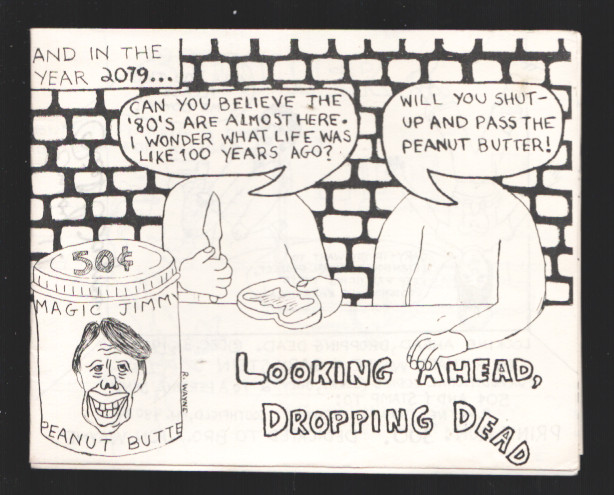 AND IN THE
YEAR 2079...
CAN YOU BELIEVE THE
'80'S ARE ALMOST HERE.
I WONDER WHAT LIFE WAS
LIKE 100 YEARS AGO?
WILL YOU SHUT-
UP AND PASS THE
PEANUT BUTTER!
50¢
MAGIC JIMMY
PEANUT BUTTE
R. WAYNE
LOOKING AHEAD,
DROPPING DEAD